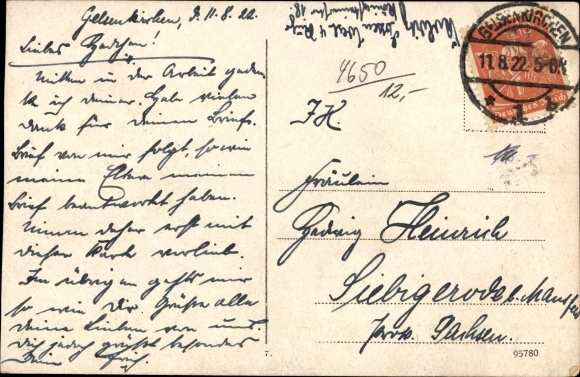 Gelsenkirchen, d. 11.8.22.
Liebes Hedchen!
Mitten in der Arbeit geden-
ke ich deiner. Habe vielen
Dank für deinen Brief.
Brief von mir folgt, so wie
meine Eltern meinen
Brief beantwortet haben.
Nimm daher erst mit
dieser Karte vorlieb.
Im übrigen gehts mir
so wie Dir. Grüße alle
deine Lieben von uns.
Dich jedoch grüßt besonders
Dein
4650
12,-
GELSENKIRCHEN
11.8.22.5-6N.
* 1 b
Deutsches Reich
Fräulein
Hedwig Heinrich
Siebigerode b. Mansfeld
Prov. Sachsen.
7.
95780